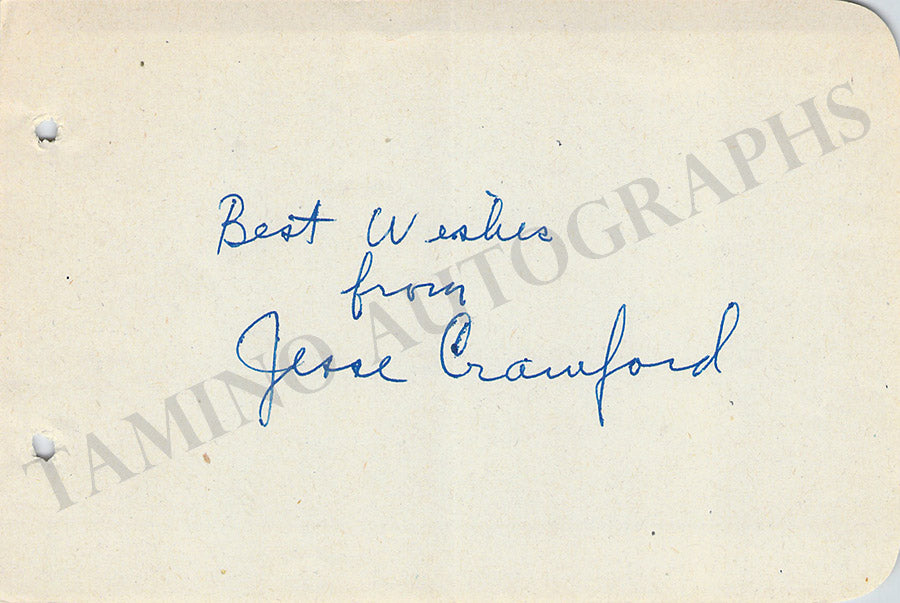 Best Wishes
from
Jesse Crawford
TAMINO AUTOGRAPHS